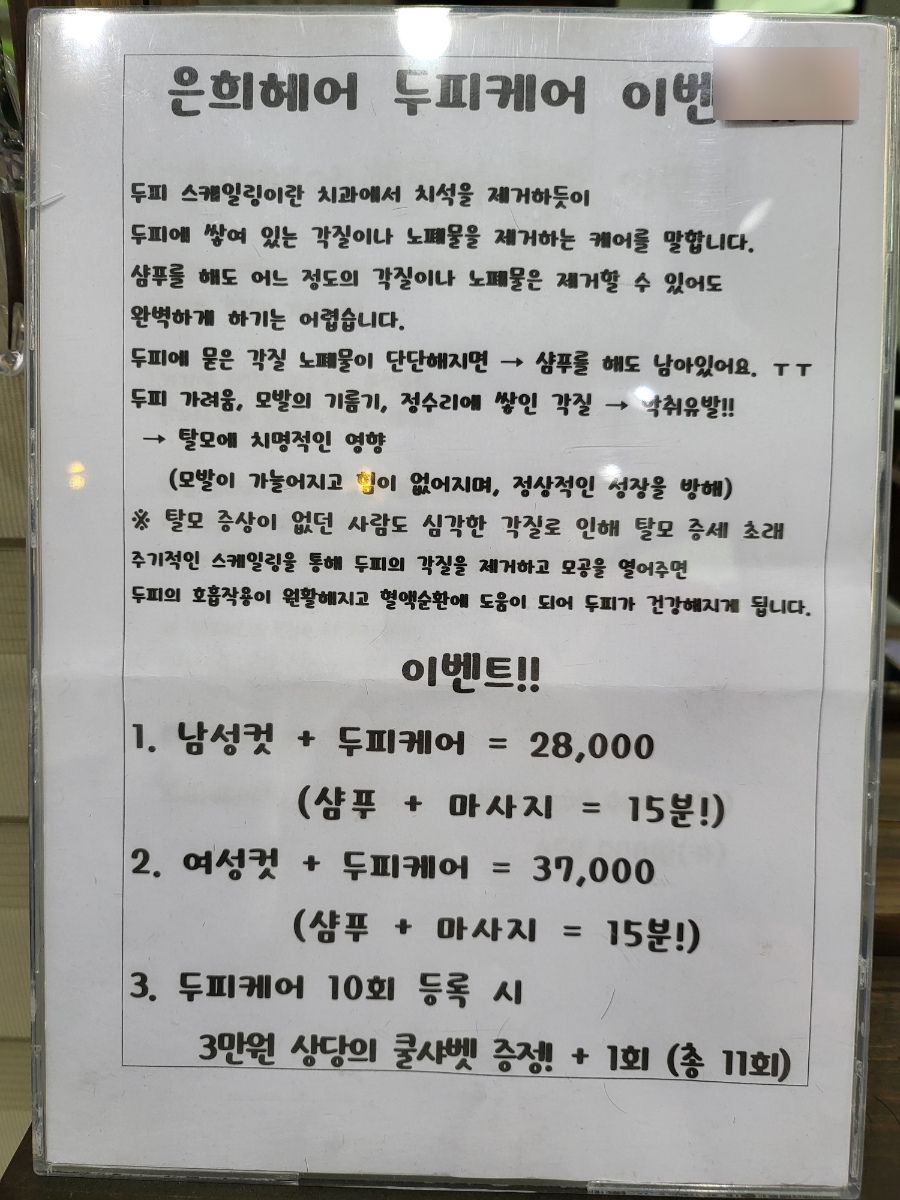 은희헤어 두피케어
두피 스캐일링이란 치과에서 치석을 제거하듯이
두피에 쌓여 있는 각질이나 노폐물을 제거하는 케어를 말합니다.
샴푸를 해도 어느 정도의 각질이나 노폐물은 제거할 수 있어도
완벽하게 하기는 어렵습니다.
두피에 묻은 각질 노폐물이 단단해지면 → 샴푸를 해도 남아있어요. ㅜㅜ
두피 가려움, 모발의 기름기, 정수리에 쌓인 각질 → 악취유발!!
→ 탈모에 치명적인 영향
(모발이 가늘어지고 힘이 없어지며, 정상적인 성장을 방해)
※ 탈모 증상이 없던 사람도 심각한 각질로 인해 탈모 증세 초래
주기적인 스케일링을 통해 두피의 각질을 제거하고 모공을 열어주면
두피의 호흡작용이 원활해지고 혈액순환에 도움이 되어 두피가 건강해지게 됩니다.
이벤트!!
1. 남성컷 + 두피케어 = 28,000
(샴푸 + 마사지 = 15분!)
2. 여성컷 + 두피케어 = 37,000
(샴푸 + 마사지 = 15분!)
3. 두피케어 10회 등록 시
3만원 상당의 쿨샤벳 증정! + 1회 (총 11회)